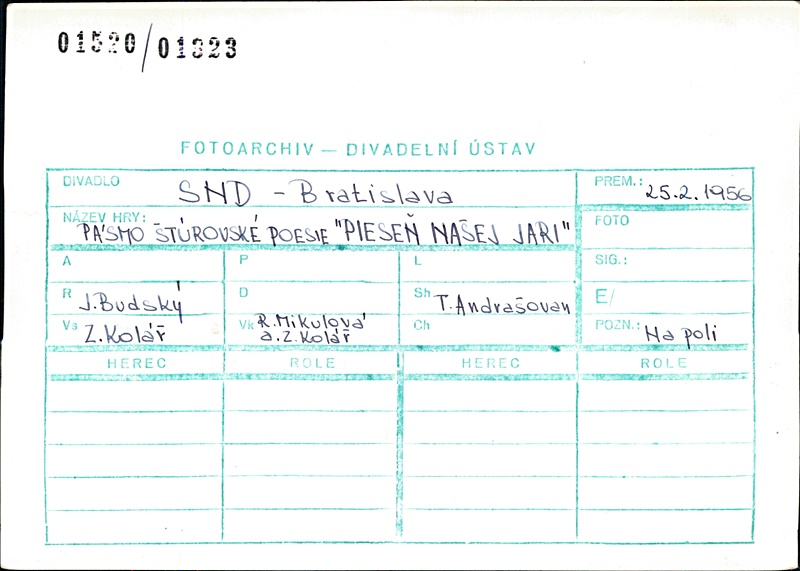 01520/01323
FOTOARCHIV — DIVADELNÍ ÚSTAV
DIVADLO SND - Bratislava
PREM.: 25.2.1956
NÁZEV HRY: PÁSMO ŠTÚROVSKÉ POESIE "PIESEŇ NAŠEJ JARI"
FOTO
A P L SIG.:
R J.Budský D Sh T.Andrašovan E/
Vs Z.Kolář Vk R.Mikulová a.Z.Kolář Ch POZN.: Na poli
HEREC ROLE HEREC ROLE